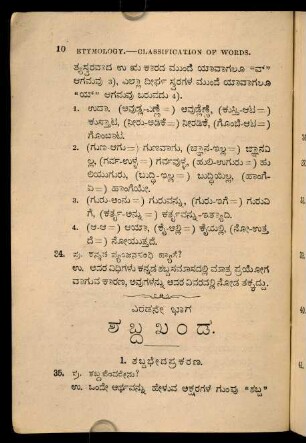 10 ETYMOLOGY.—CLASSIFICATION OF WORDS.
ತ್ಯಸ್ವರವಾದ ಉ ಋ ಕಾರದ ಮುಂದೆ ಯಾವಾಗಲೂ "ವ್"
ಆಗಮವು 3), ಎಲ್ಲಾ ದೀರ್ಘ ಸ್ವರಗಳ ಮುಂದೆ ಯಾವಾಗಲೂ
"ಯ್" ಆಗಮವು ಬರುವದು 4).
1. ಉದಾ. (ಅವುಡ್ಲ-ಎಣ್ಣೆ =) ಅವುಡ್ಲೆಣ್ಣೆ, (ಕುಸ್ತಿ-ಆಟ=)
ಕುಸ್ತಾಟ, (ನೀರು-ಅಡಿಕೆ=) ನೀರಡಿಕೆ, (ಗೊಂಬೆ-ಆಟ=)
ಗೊಂಬಾಟ.
2. (ಗುಣ-ಆಗು=) ಗುಣವಾಗು, (ಜ್ಞಾನ-ಇಲ್ಲ=) ಜ್ಞಾನವಿ
ಲ್ಲ, (ಗರ್ವ-ಉಳ್ಳ=) ಗರ್ವವುಳ್ಳ, (ಹುಲಿ-ಉಗುರು=) ಹು
ಲಿಯುಗುರು, (ಬುದ್ಧಿ-ಇಲ್ಲ=) ಬುದ್ಧಿಯಿಲ್ಲ, (ಹಾಂಗೆ-
ಏ=) ಹಾಂಗೆಯೇ.
3. (ಗುರು-ಅಂನು=) ಗುರುವನ್ನು, (ಗುರು-ಇಗೆ=) ಗುರುವಿ
ಗೆ, (ಕರ್ತೃ-ಅನ್ನು=) ಕರ್ತೃವನ್ನು-ಇತ್ಯಾದಿ.
4. (ಆ-ಆ=) ಆಯಾ, (ಕೈ-ಅಲ್ಲಿ=) ಕೈಯಲ್ಲಿ, (ನೋ-ಉತ್ತ
ದೆ=) ನೋಯುತ್ತದೆ.
34. ಪ್ರ. ಕನ್ನಡ ವ್ಯಂಜನಸಂಧಿ ಹ್ಯಾಗೆ?
ಉ. ಅದರ ವಿಧಿಗಳು ಕನ್ನಡ ಶಬ್ದಸಮಾಸದಲ್ಲಿ ಮಾತ್ರ ಪ್ರಯೋಗ
ವಾಗುವ ಕಾರಣ, ಅವುಗಳನ್ನು ಅದರ ವಿವರದಲ್ಲಿ ನೋಡ ತಕ್ಕದ್ದು.
ಎರಡನೇ ಭಾಗ
ಶಬ್ದಖಂಡ.
1. ಶಬ್ದಭೇದಪ್ರಕರಣ.
35. ಪ್ರ. ಶಬ್ದವೆಂದರೇನು?
ಉ. ಒಂದೇ ಅರ್ಥವನ್ನು ಹೇಳುವ ಅಕ್ಷರಗಳ ಗುಂಪು "ಶಬ್ದ"